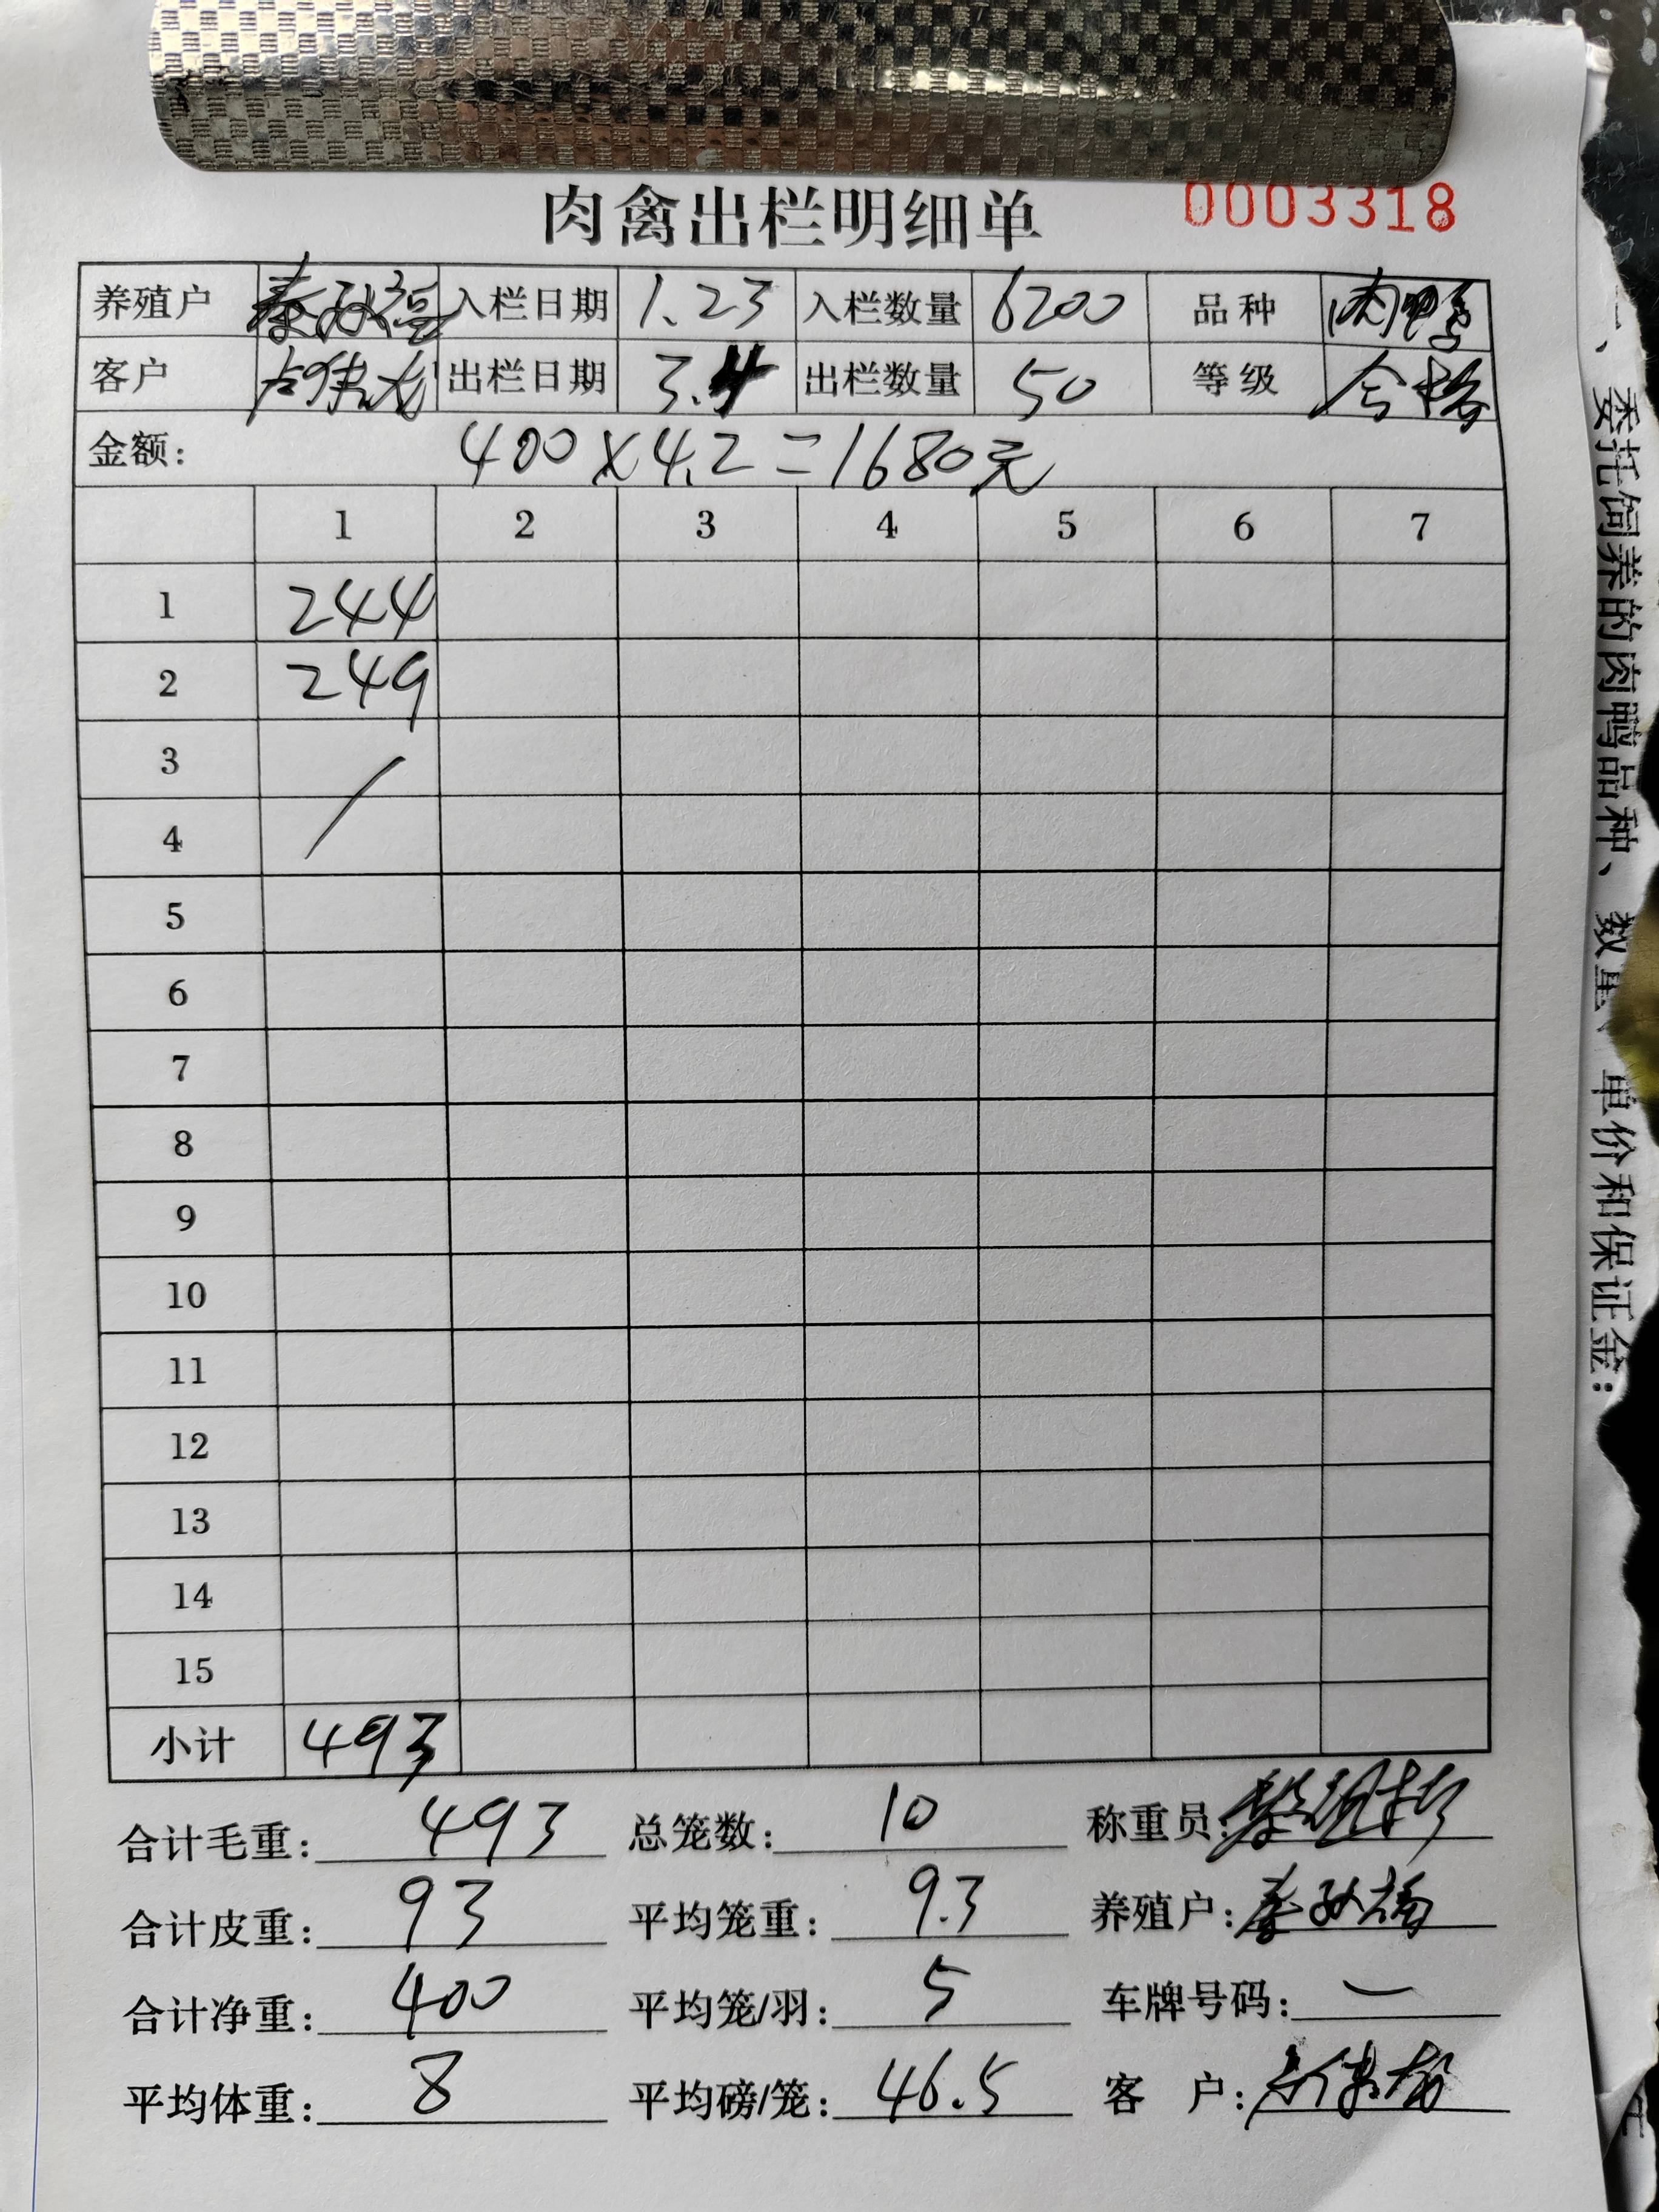 肉禽出栏明细单 0003318
养殖户 入栏日期 1.23 入栏数量 6200 品种 肉鸭
客户 出栏日期 3.4 出栏数量 50 等级 合格
金额: 400×4.2=1680元
1 2 3 4 5 6 7
1 244
2 249
3 /
4
5
6
7
8
9
10
11
12
13
14
15
小计 493
合计毛重: 493 总笼数: 10 称重员:
合计皮重: 93 平均笼重: 9.3 养殖户:
合计净重: 400 平均笼/羽: 5 车牌号码: —
平均体重: 8 平均磅/笼: 46.5 客 户:
一、委托饲养的肉鸭品种、数量、单价和保证金: